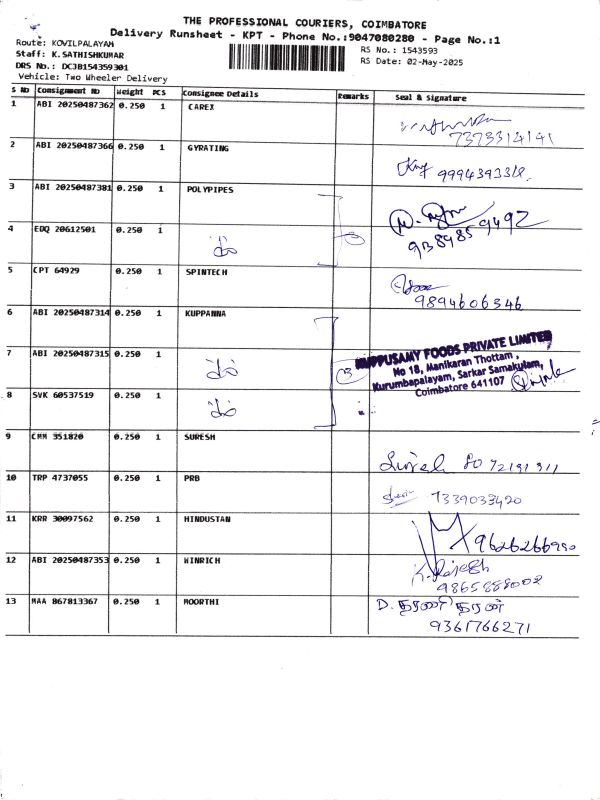 THE PROFESSIONAL COURIERS, COIMBATORE
Delivery Runsheet - KPT - Phone No.:9047080280 - Page No.:1
Route: KOVILPALAYAM
Staff: K.SATHISHKUMAR
DRS No.: DCJB154359301
Vehicle: Two Wheeler Delivery
RS No.: 1543593
RS Date: 02-May-2025
S No Consignment No Weight PCS Consignee Details Remarks Seal & Signature
1 ABI 20250487362 0.250 1 CAREX
7373314141
2 ABI 20250487366 0.250 1 GYRATING
3 ABI 20250487381 0.250 1 POLYPIPES
4 EDQ 20612501 0.250 1
9389859492
5 CPT 64929 0.250 1 SPINTECH
9894606346
6 ABI 20250487314 0.250 1 KUPPANNA
7 ABI 20250487315 0.250 1
KUPPUSAMY FOODS PRIVATE LIMITED
No 18, Manikaran Thottam,
Kurumbapalayam, Sarkar Samakulam,
Coimbatore 641107
8 SVK 60537519 0.250 1
9 CMM 351820 0.250 1 SURESH
10 TRP 4737055 0.250 1 PRB
7339033420
11 KRR 30097562 0.250 1 HINDUSTAN
9626266990
12 ABI 20250487353 0.250 1 WINRICH
K. Rajesh
9865888002
13 MAA 867813367 0.250 1 MOORTHI
D. தரணி தரன்
9361766271